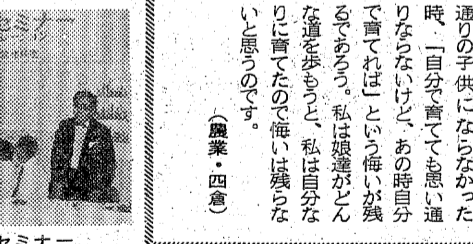 通りの子供にならなかった
時、「自分で育てても思い通
りならないけど、あの時自分
で育てれば」という悔いが残
るであろう。私は娘達がどん
な道を歩もうと、私は自分な
りに育てたので悔いは残らな
いと思うのです。
（農業・四倉）
セミナー
セミナー